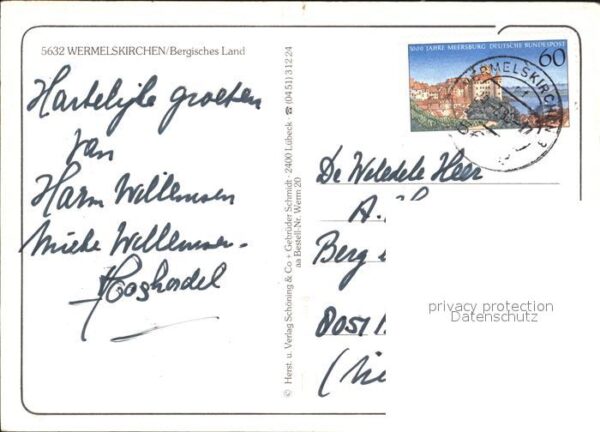 5632 WERMELSKIRCHEN/Bergisches Land
Hartelijke groeten
van
Harm Willemsen
Mieke Willemsen-
© Herst. u. Verlag Schöning & Co + Gebrüder Schmidt · 2400 Lübeck · ☎ (04 51) 3 12 24
aa Bestell-Nr. Werm 20
1000 JAHRE MEERSBURG DEUTSCHE BUNDESPOST
60
WERMELSKIRCHEN
De Weledele Heer
A.
Berg
8051
privacy protection
Datenschutz